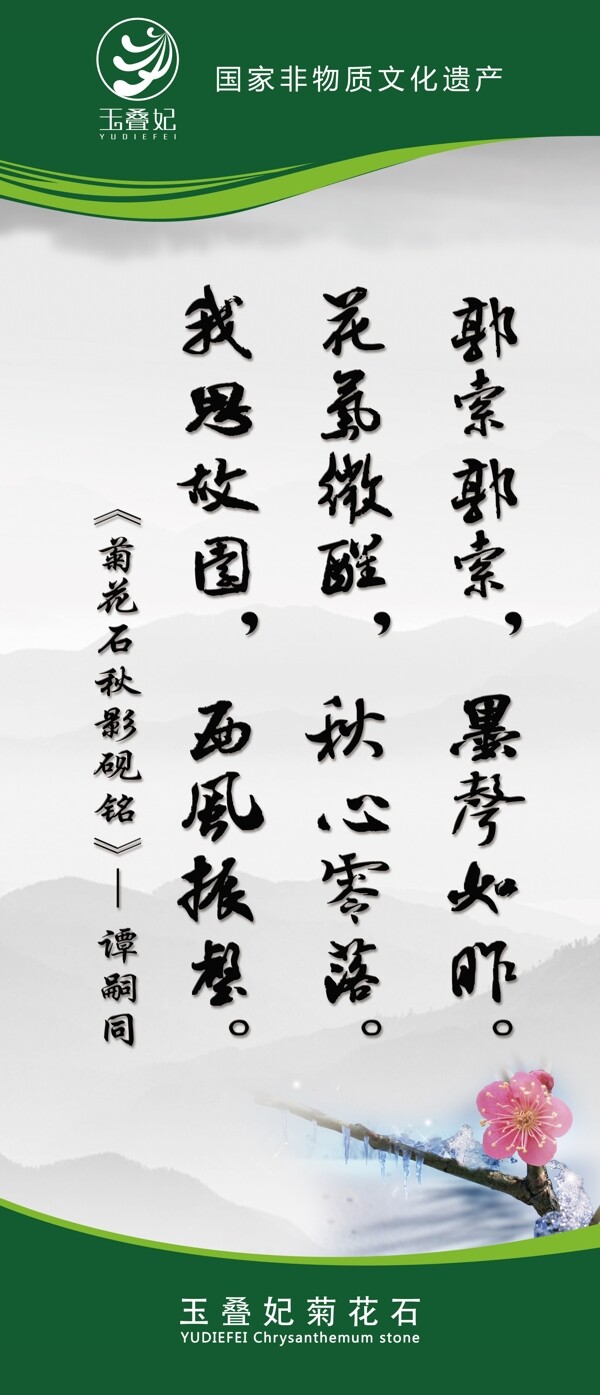 玉叠妃
YUDIEFEI
国家非物质文化遗产
郭索郭索，墨聲如昨。
花氣微醒，秋心零落。
我思故園，西風振壑。
《菊花石秋影砚铭》—谭嗣同
玉叠妃菊花石
YUDIEFEI Chrysanthemum stone